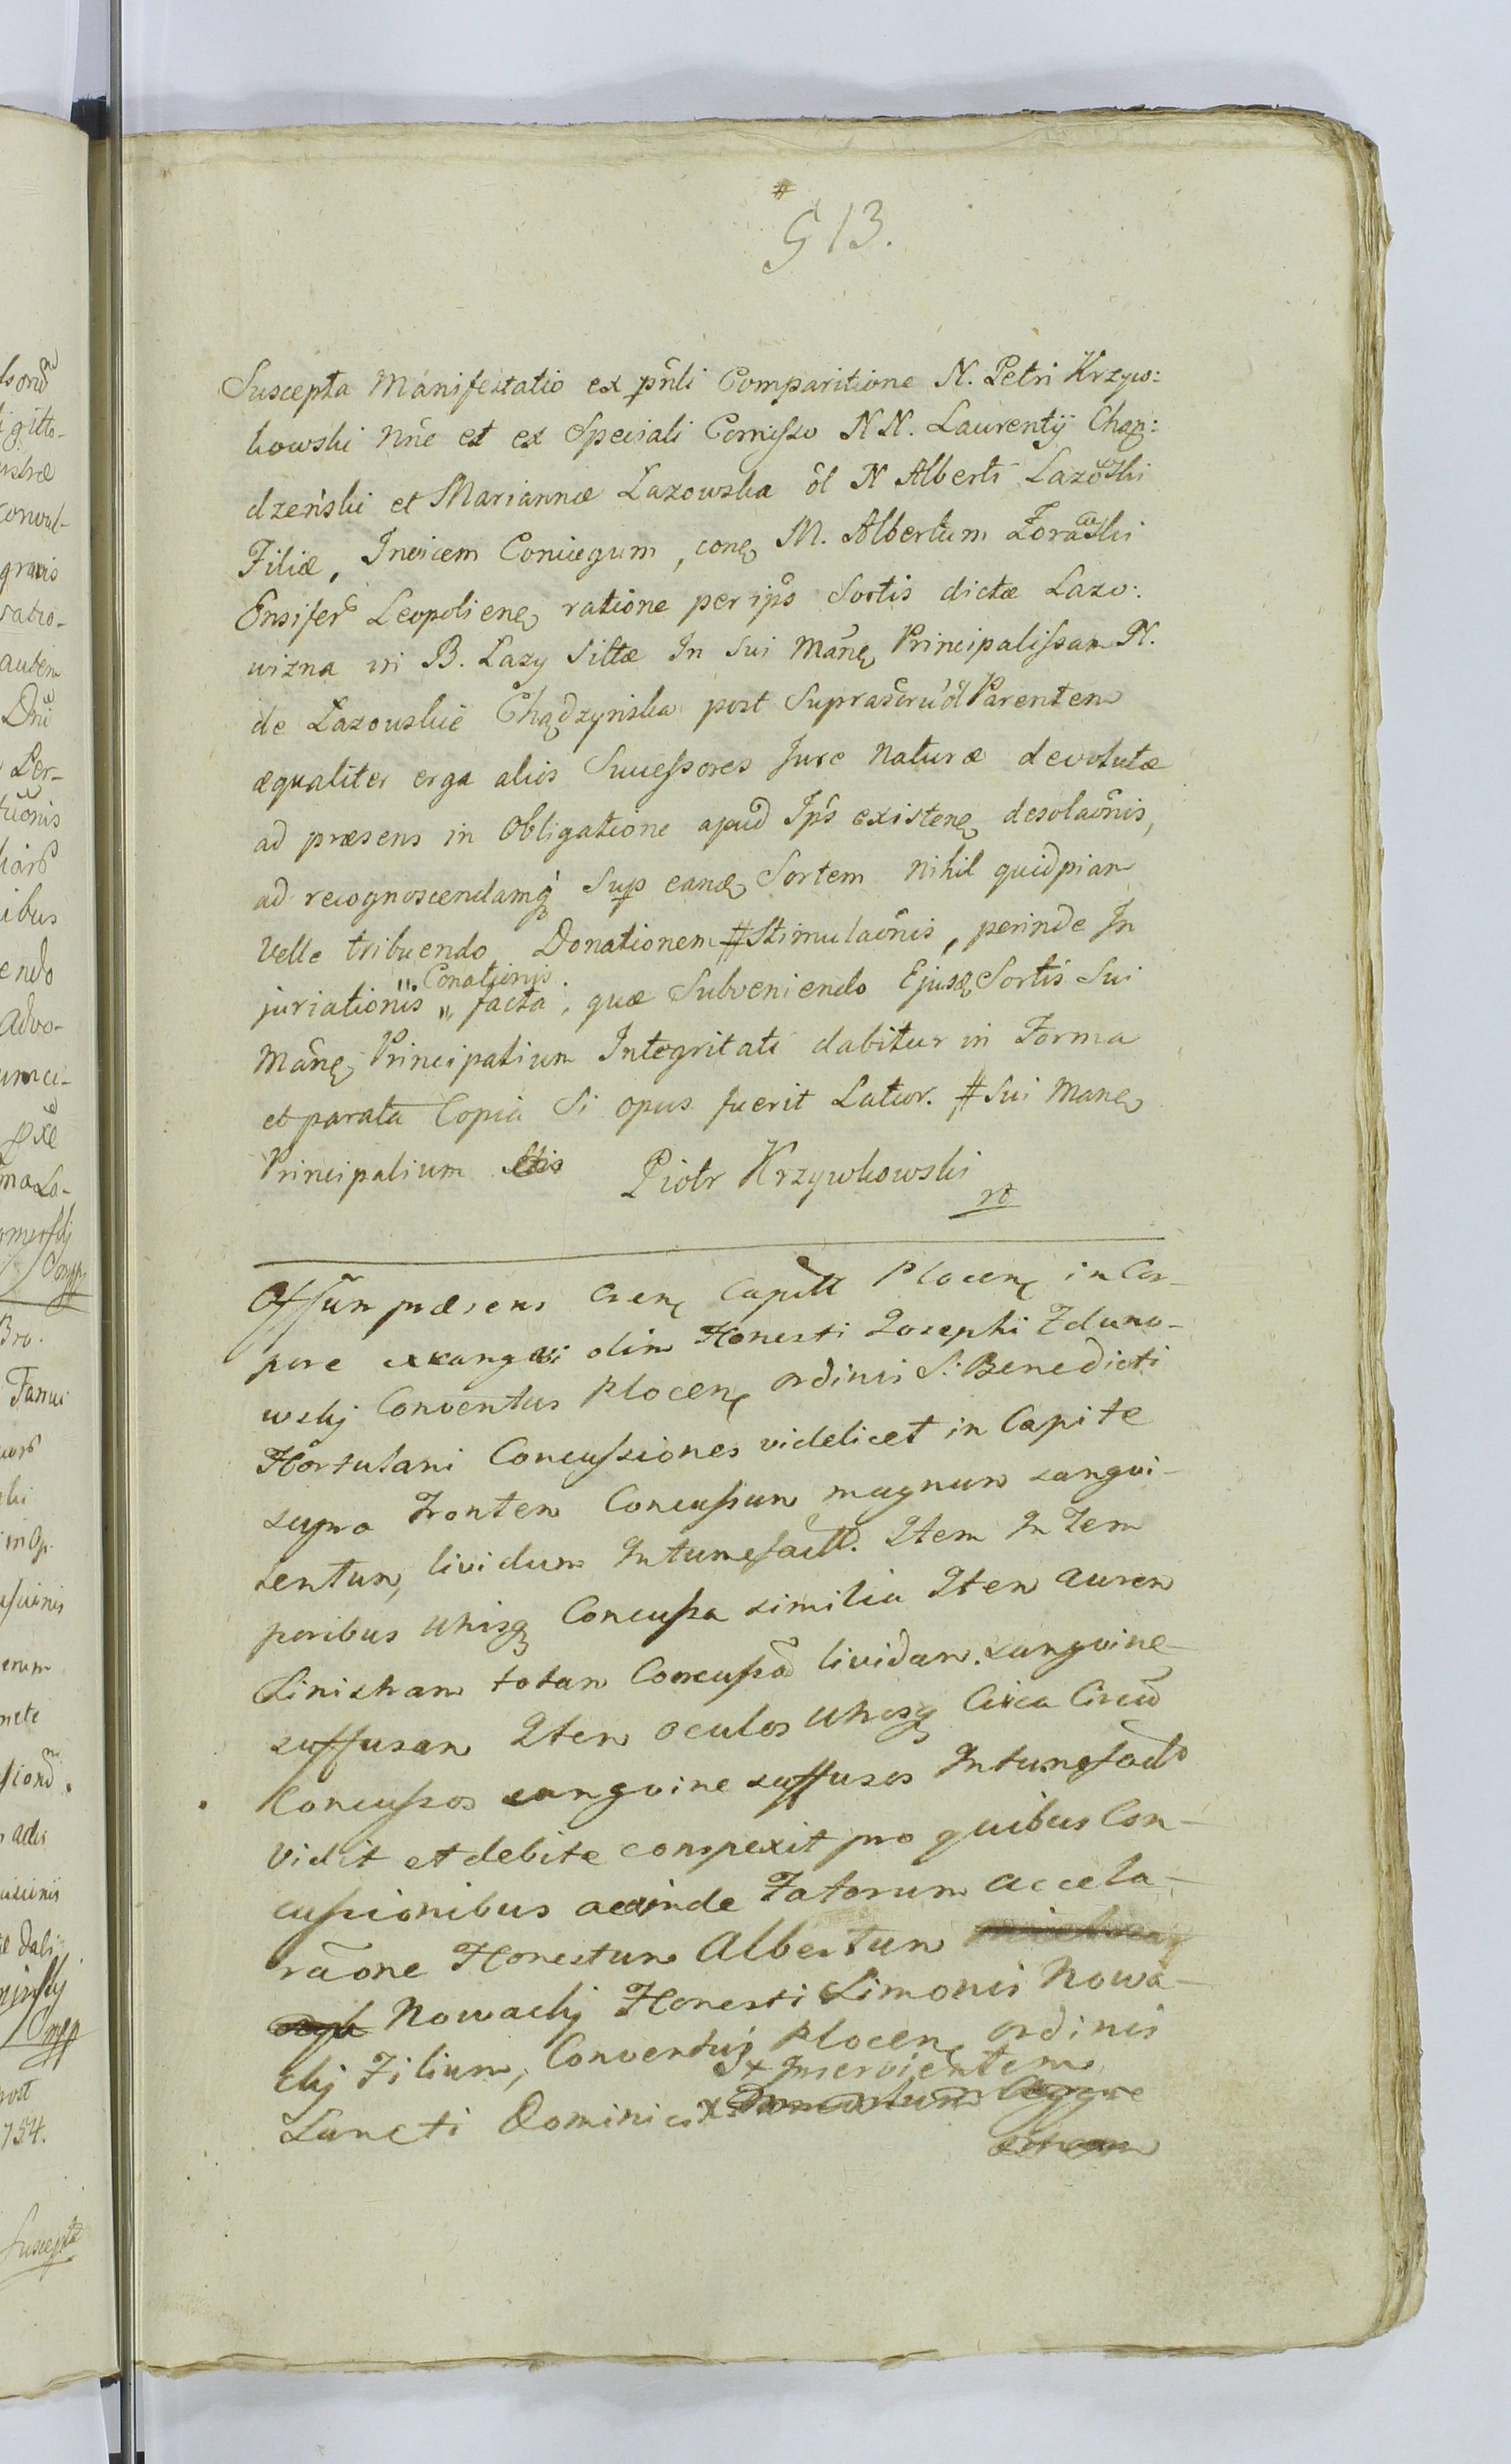 #
513.
Suscepta Manifestatio ex pñli Comparitione N. Petri Krzyw:
kowski nñe et ex Speciali Comisso NN. Laurentÿ Chąn:
dzeński et Mariannæ Lazowska ôl N Alberti Lazowski
Filiæ, Invicem Coniugum, conę M. Albertum Zorawski
Ensifer Leopolienę ratione per ipŝ Sortis dictæ Lazo:
wizna in B. Lazy Sittæ In Sui Manę Principalissam N.
de Lazouskie Chądzyńska post Suprascrũ ôl Parentem
æqualiter erga alios Successores Jure Naturæ devolutæ
ad præsens in Obligatione apud Ips existenę desolaõnis,
ad recognoscendamq́ Sup eandę Sortem nihil quidpiam
Velle tribuendo Donationem # Stimulaõnis, perinde In
juriationis „ facta, quæ Subveniendo Ejusdę Sortis Sui
„ Conationis.
Manę Principalium Integritati dabitur in Forma
et parata Copia Si opus fuerit Latior. # Sui Manę
Principalium Piotr Krzywkowski
Offũm præsens Csenę Capitt Plocenę in Cor-
pore exangvi olim Honesti Josephi Zduno-
wskj Conventus Plocenę ordinis S: Benedicti
Hortulani Concussiones videlicet in Capite
supra Frontem Concussum magnum sangvi-
lentum, lividum Intumefactt. Item In Tem
poribus utrisq Concussa similia Item aurem
Sinistram totam Concussam lividam. sangvine
suffusam Item oculos utrosq Circa Circũ
Concussos sangvine suffusos Intumefactos
vidit et debite conspexit pro quibus Con-
cussionibus acinde Fatorum accela-
rãone Honestum Albertum
Nowackj Honesti Simonis Nowa-
ckj Filium, Conventus Plocenę ordinis
x Inservientem
Sancti Dominici x